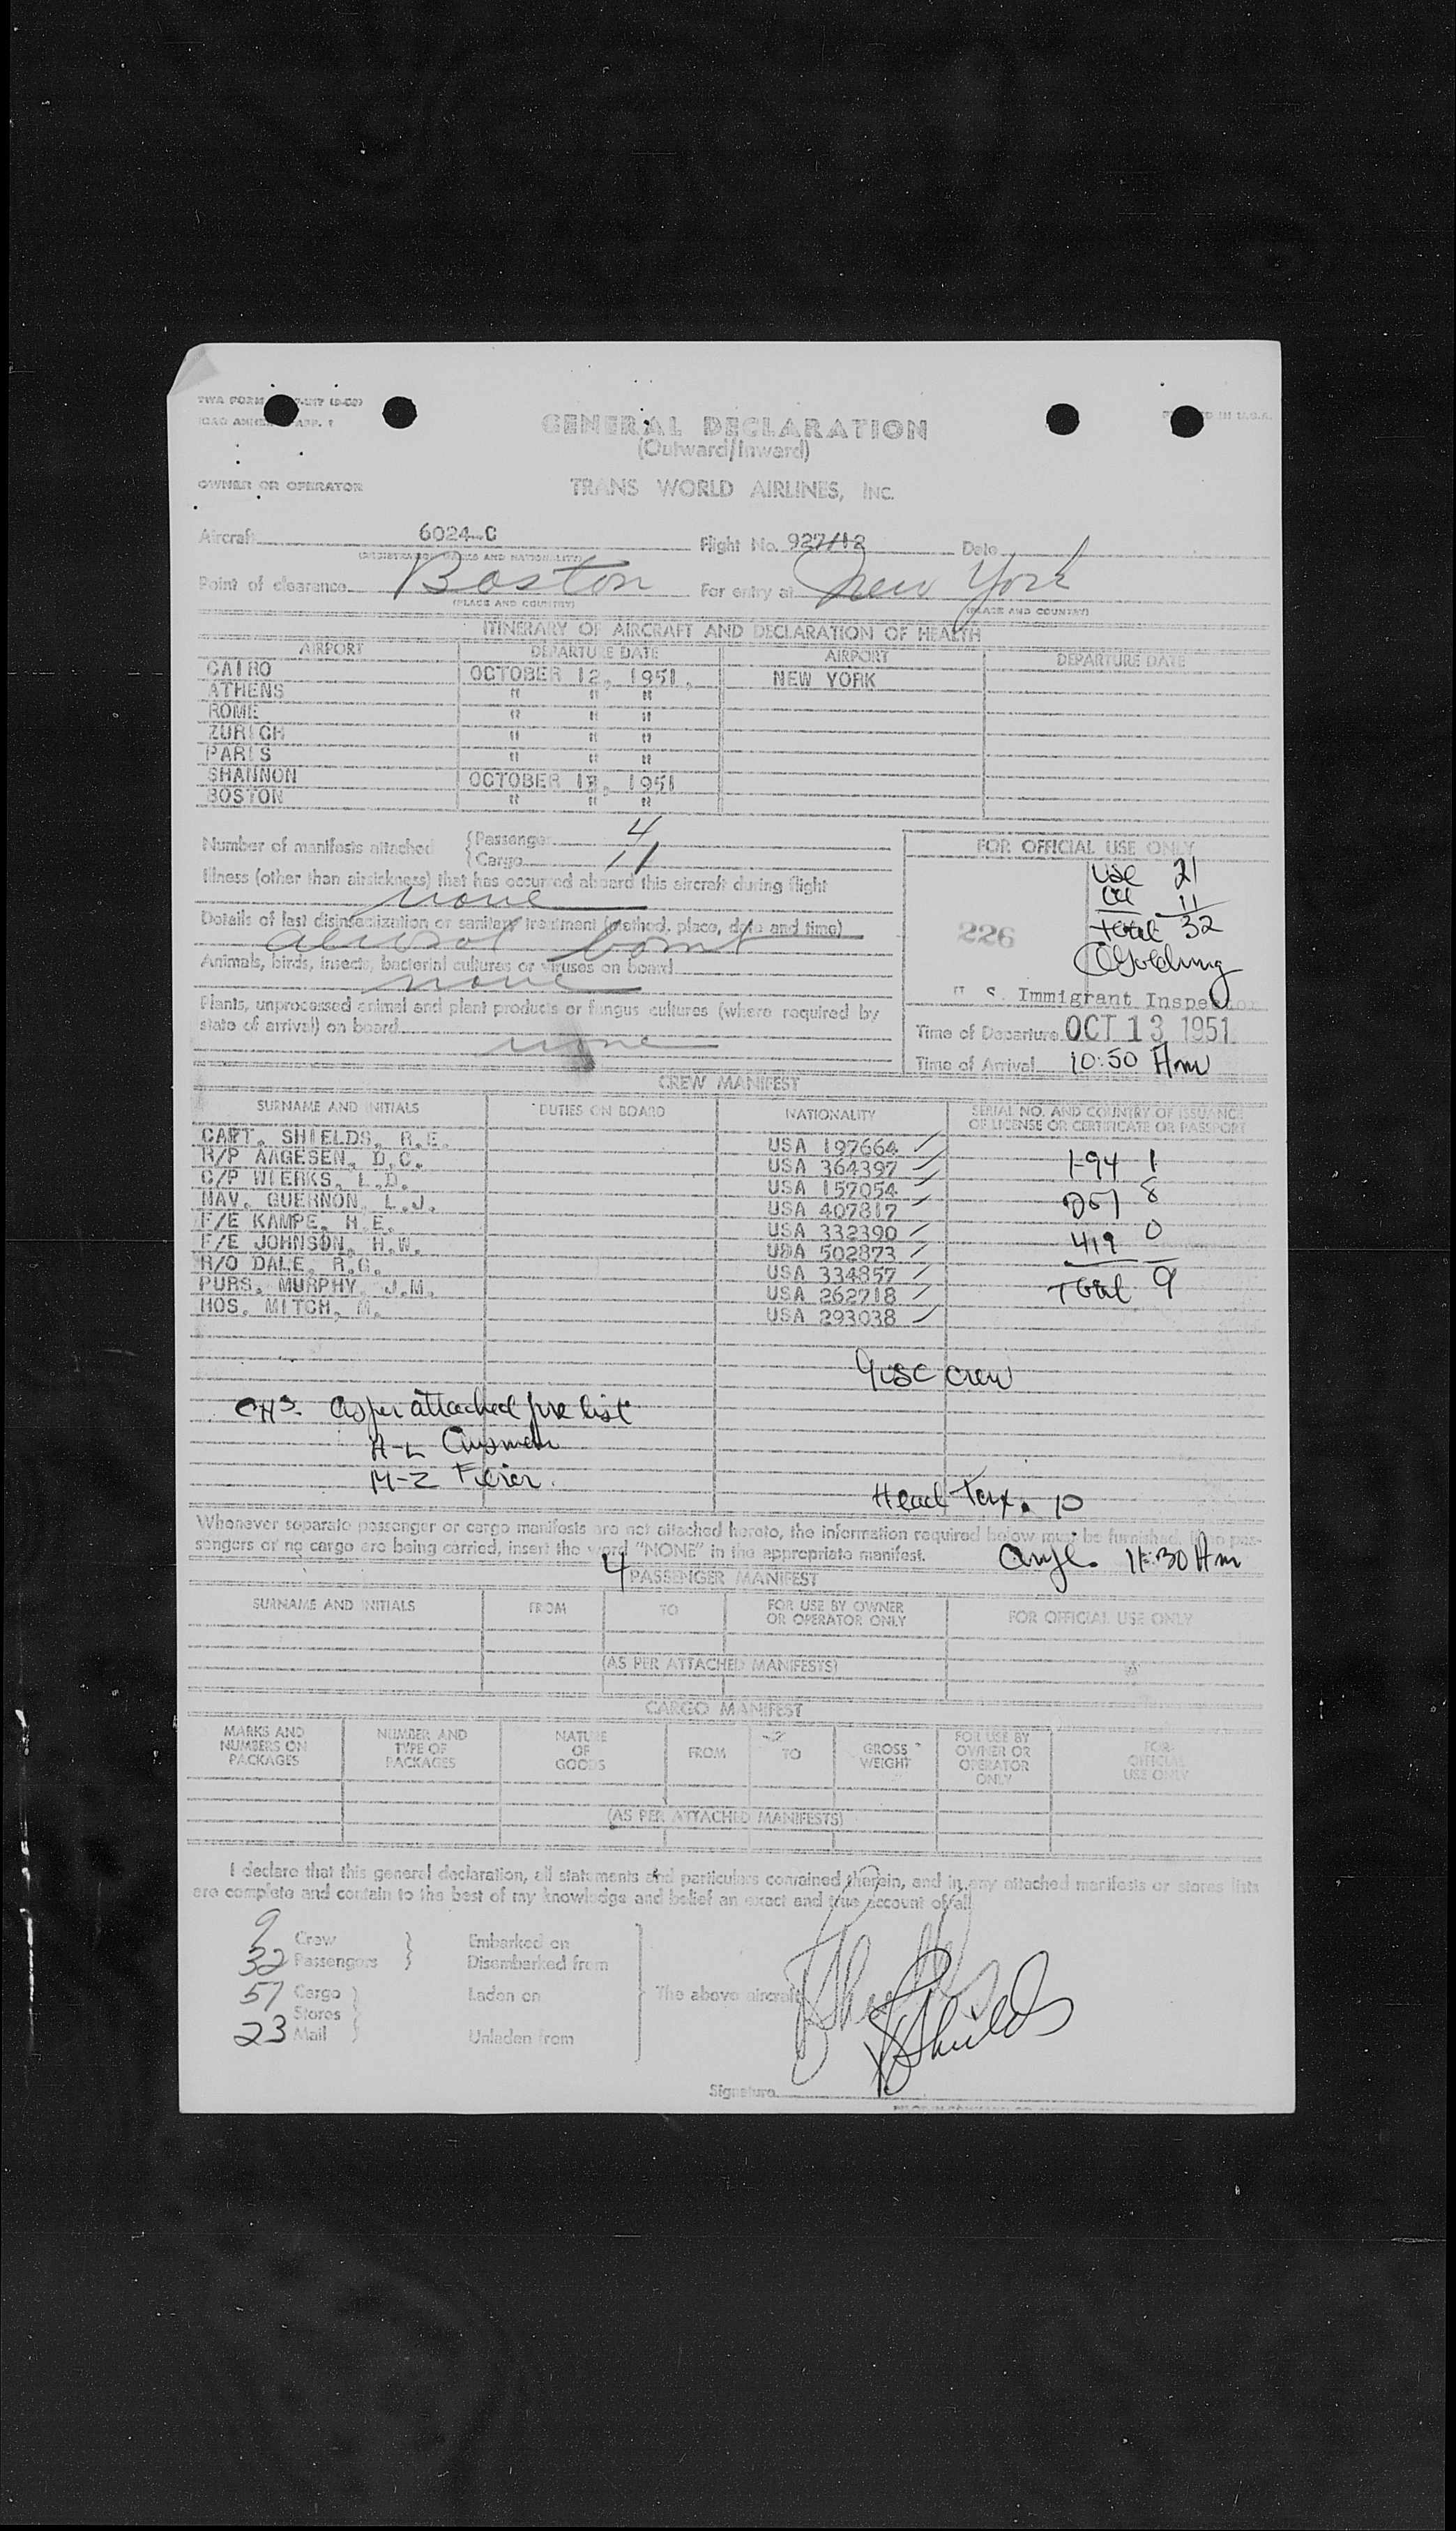 TWA FORM
ICAO ANNEX APP. 1
IN U.S.A.
GENERAL DECLARATION
(Outward/Inward)
OWNER OR OPERATOR
TRANS WORLD AIRLINES, INC.
Aircraft 6024-C Flight No. 927/12 Date
Point of clearance Boston For entry at New York
(PLACE AND COUNTRY) (PLACE AND COUNTRY)
ITINERARY OF AIRCRAFT AND DECLARATION OF HEALTH
AIRPORT DEPARTURE DATE AIRPORT DEPARTURE DATE
CAIRO OCTOBER 12, 1951, NEW YORK
ATHENS " " "
ROME " " "
ZURICH " " "
PARIS " " "
SHANNON OCTOBER 13, 1951
BOSTON " " "
Number of manifests attached { Passenger 4
{ Cargo 11
Illness (other than airsickness) that has occurred aboard this aircraft during flight
none
Details of last disinsectization or sanitary treatment (method, place, date and time)
aerosol bomb
Animals, birds, insects, bacterial cultures or viruses on board
none
Plants, unprocessed animal and plant products or fungus cultures (where required by
state of arrival) on board
none
FOR OFFICIAL USE ONLY
USC 21
11
226
Total 32
Golding
U. S. Immigrant Inspector
Time of Departure OCT 13 1951
Time of Arrival 10:50 Am
CREW MANIFEST
SURNAME AND INITIALS DUTIES ON BOARD NATIONALITY SERIAL NO. AND COUNTRY OF ISSUANCE
OF LICENSE OR CERTIFICATE OR PASSPORT
CAPT. SHIELDS, R.E. USA 197664
R/P AAGESEN, D.C. USA 364397 I-94 1
C/P WIERKS, L.D. USA 157054
NAV. GUERNON, L.J. USA 407817 257 8
F/E KAMPE, H.E. USA 332390
F/E JOHNSON, H.W. USA 502873 419 0
R/O DALE, R.G. USA 334857
PURS. MURPHY, J.M. USA 262718 Total 9
HOS. MITCH, M. USA 293038
9 USC crew
As per attached list
A-L
M-Z
Head Tax. 10
Whenever separate passenger or cargo manifests are not attached hereto, the information required below must be furnished. If no pas-
sengers or no cargo are being carried, insert the word "NONE" in the appropriate manifest.
11:30 Am
4 PASSENGER MANIFEST
SURNAME AND INITIALS FROM TO FOR USE BY OWNER
OR OPERATOR ONLY FOR OFFICIAL USE ONLY
(AS PER ATTACHED MANIFESTS)
CARGO MANIFEST
MARKS AND NUMBERS ON PACKAGES NUMBER AND TYPE OF PACKAGES NATURE OF GOODS FROM TO GROSS WEIGHT FOR USE BY OWNER OR OPERATOR ONLY FOR OFFICIAL USE ONLY
(AS PER ATTACHED MANIFESTS)
I declare that this general declaration, all statements and particulars contained therein, and in any attached manifests or stores lists
are complete and contain to the best of my knowledge and belief an exact and true account of all
9 Crew } Embarked on
32 Passengers } Disembarked from
57 Cargo } Laden on The above aircraft
Stores
23 Mail } Unladen from
Shields
Shields
Signature